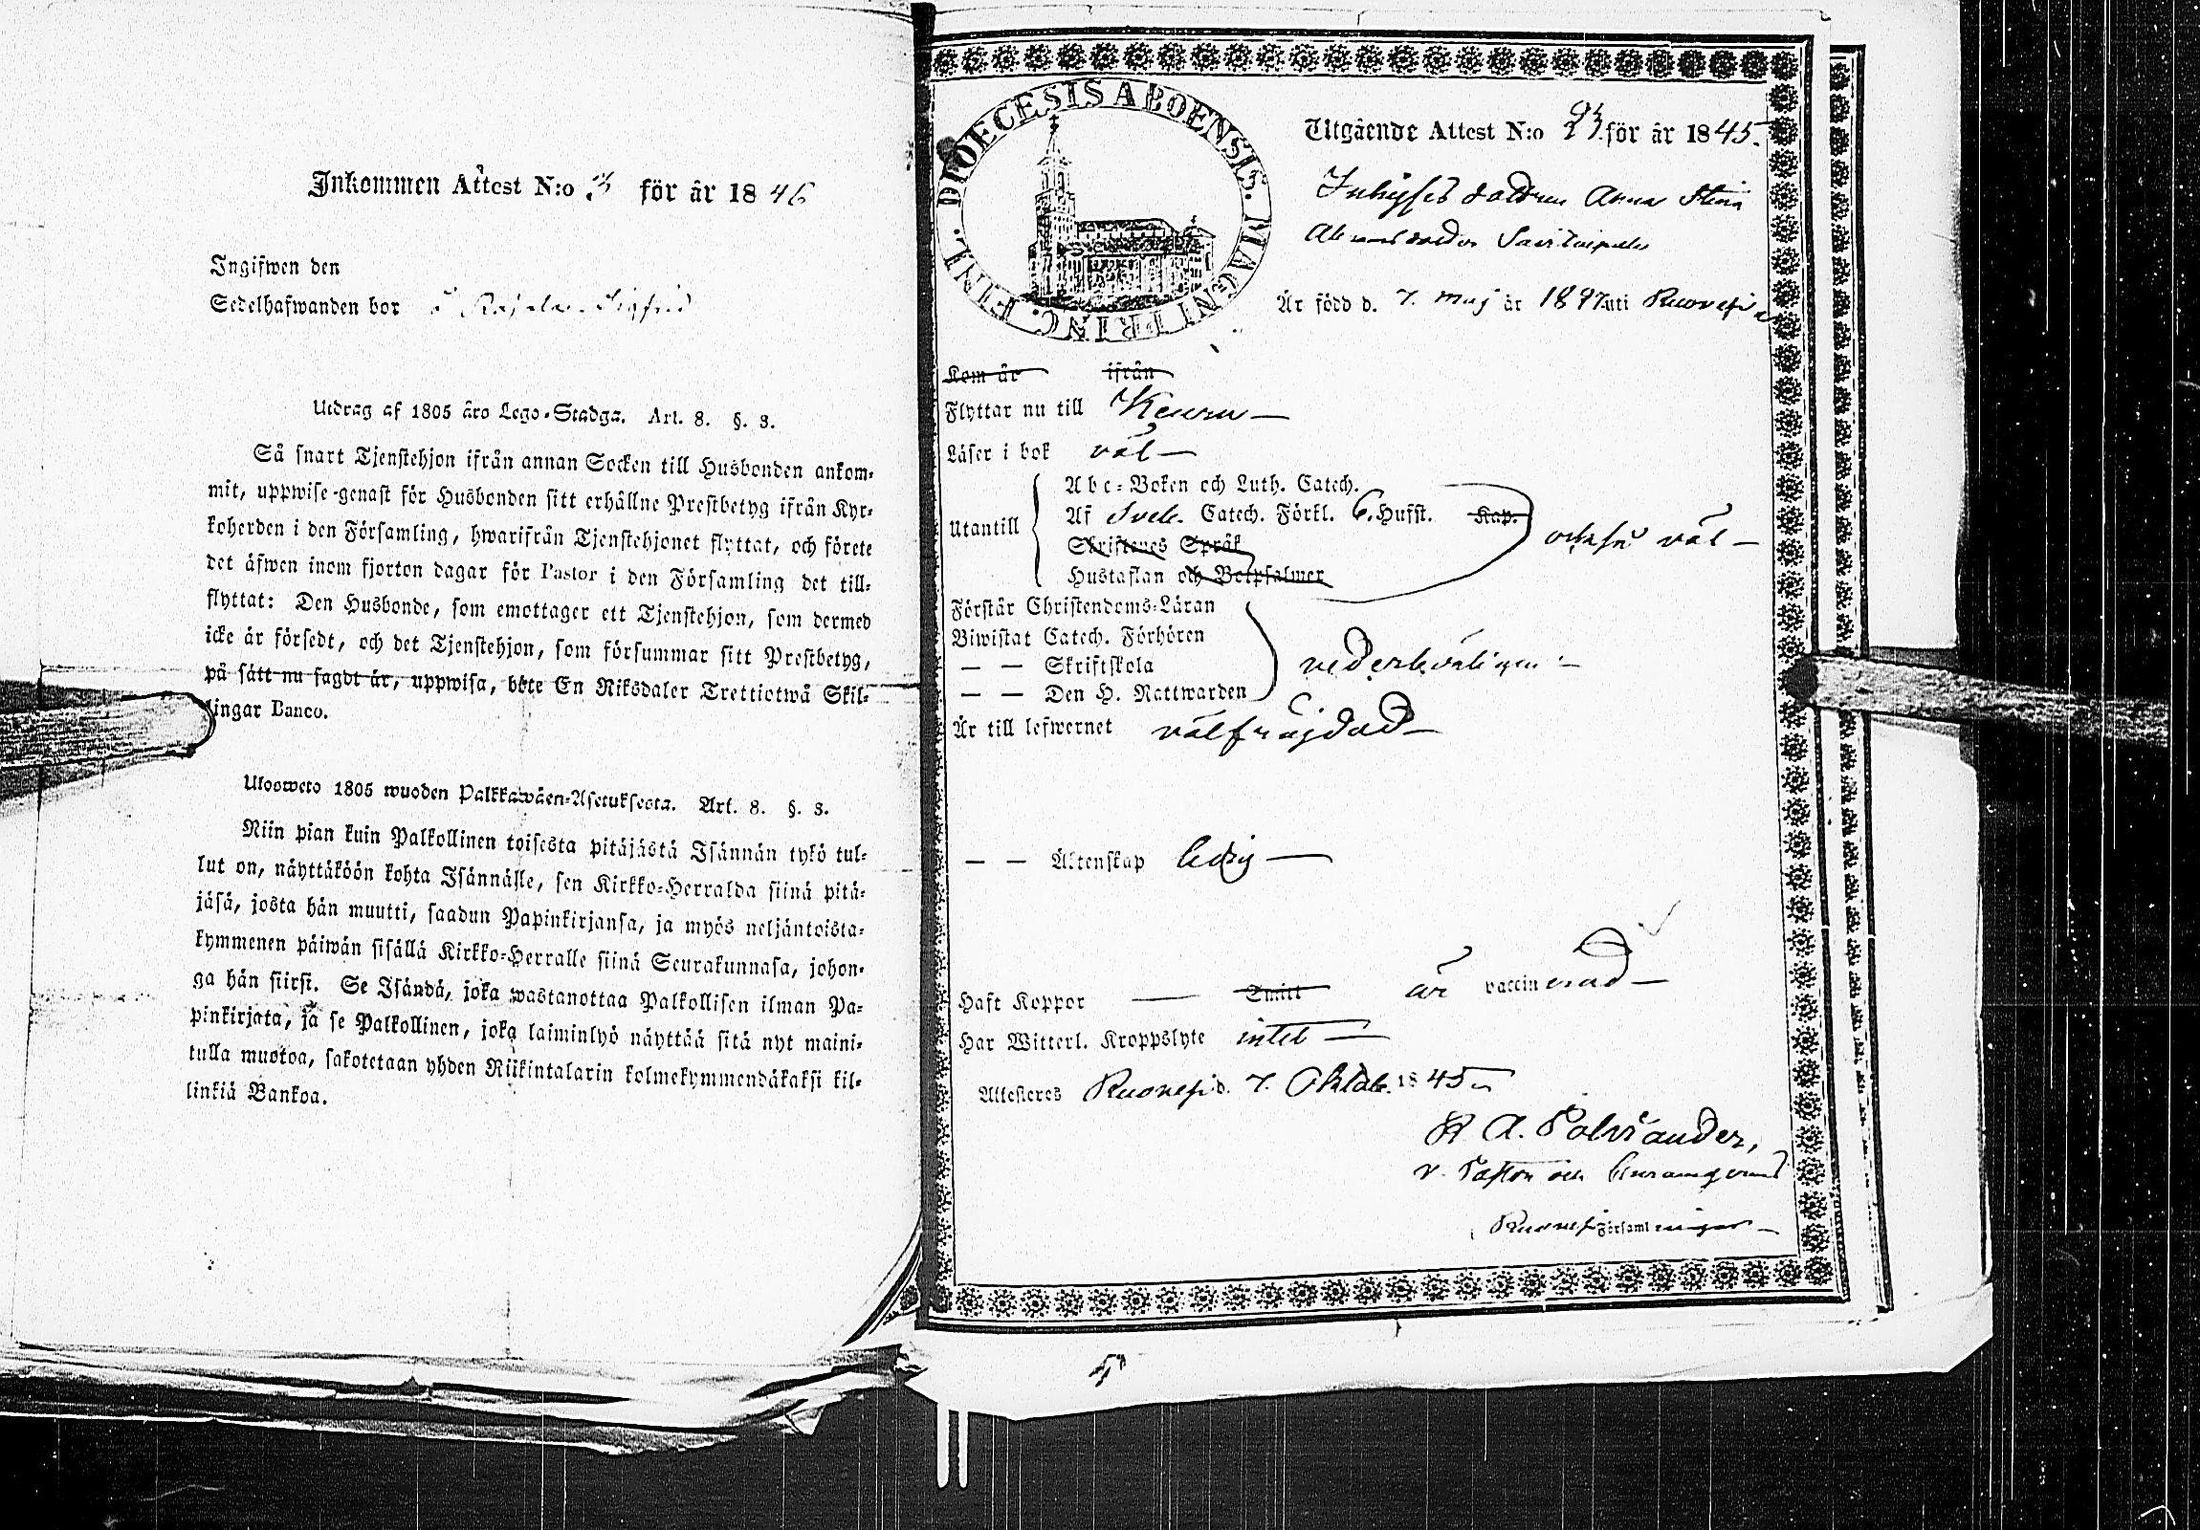 Inkommen Attest N:o 3 för år 1846
Ingifwen den
Sedelhafwanden bor
Utdrag af 1805 åro Lego-Stadga. Art. 8. §. 3.
Så snart Tjenstehjon ifrån annan Socken till Husbonden ankom-
mit, uppwise genast för Husbonden sitt erhållne Prestbetyg ifrån Kyr-
koherden i den Församling, hwarifrån Tjenstehjonet flyttat, och förete
det äfwen inom fjorton dagar för Pastor i den Församling det till-
flyttat: Den Husbonde, som emottager ett Tjenstehjon, som dermed
icke är försedt, och det Tjenstehjon, som försummar sitt Prestbetyg,
på sätt nu sagdt är, uppwisa, böte En Riksdaler Trettiotwå Skil-
lingar Banco.
Ulosweto 1805 wuoden Palkkawäen-Asetuksesta. Art. 8. §. 3.
Niin pian kuin Palkollinen toisesta pitäjästä Isännän tykö tul-
lut on, näyttäköön kohta Isännälle, sen Kirkko-Herralda siinä pitä-
jäsä, josta hän muutti, saadun Papinkirjansa, ja myös neljäntoista-
kymmenen päiwän sisällä Kirkko-Herralle siinä Seurakunnasa, johon-
ga hän siirsi. Se Isändä, joka wastanottaa Palkollisen ilman Pa-
pinkirjata, ja se Palkollinen, joka laiminlyö näyttää sitä nyt maini-
tulla muotoa, sakotetaan yhden Riikintalarin kolmekymmendäkaksi kil-
linkiä Bankoa.
DIOECESIS ABOENSIS. MAGNI PRINC. FINL.
Utgående Attest N:o 23 för år 1845.
Inhyses dottren Anna Stina
Abramsdotter Savitaipale
Är född d. 7. Maj år uti Ruovesi
Kom år ifrån
Flyttar nu till Keuru
Läser i bok väl
Utantill
Abc-Boken och Luth. Catech.
Af Sveb. Catech. Förkl. 6. Hufst. Kap.
Skriftenes Språk
Hustaflan och Botpsalmer
också väl
Förstår Christendoms-Läran
Biwistat Catech. Förhören
— — Skriftskola
— — Den H. Nattwarden
vederbörligen
Är till lefwernet välfräjdad
— — Äktenskap ledig
Haft Koppor Smitt är vaccinerad
Har Witterl. Kroppslyte intet
Attesteres Ruovesi d. 7. Oktob. 1845
K A. Polviander,
v. Pastor och
Ruovesi Församlningar